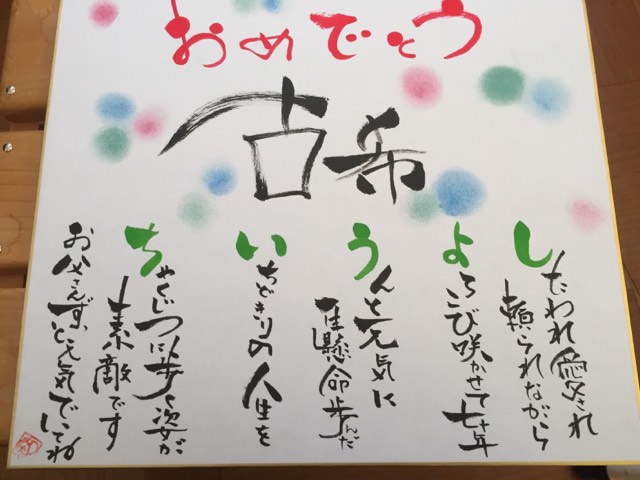 おめでとう
古希
したわれ愛され
頼られながら
よろこび咲かせて七十年
うんと元気に
一生懸命歩んだ
いちどきりの人生を
ちゃくじつに歩く姿が
素敵です
お父さんずっと元気でいてね